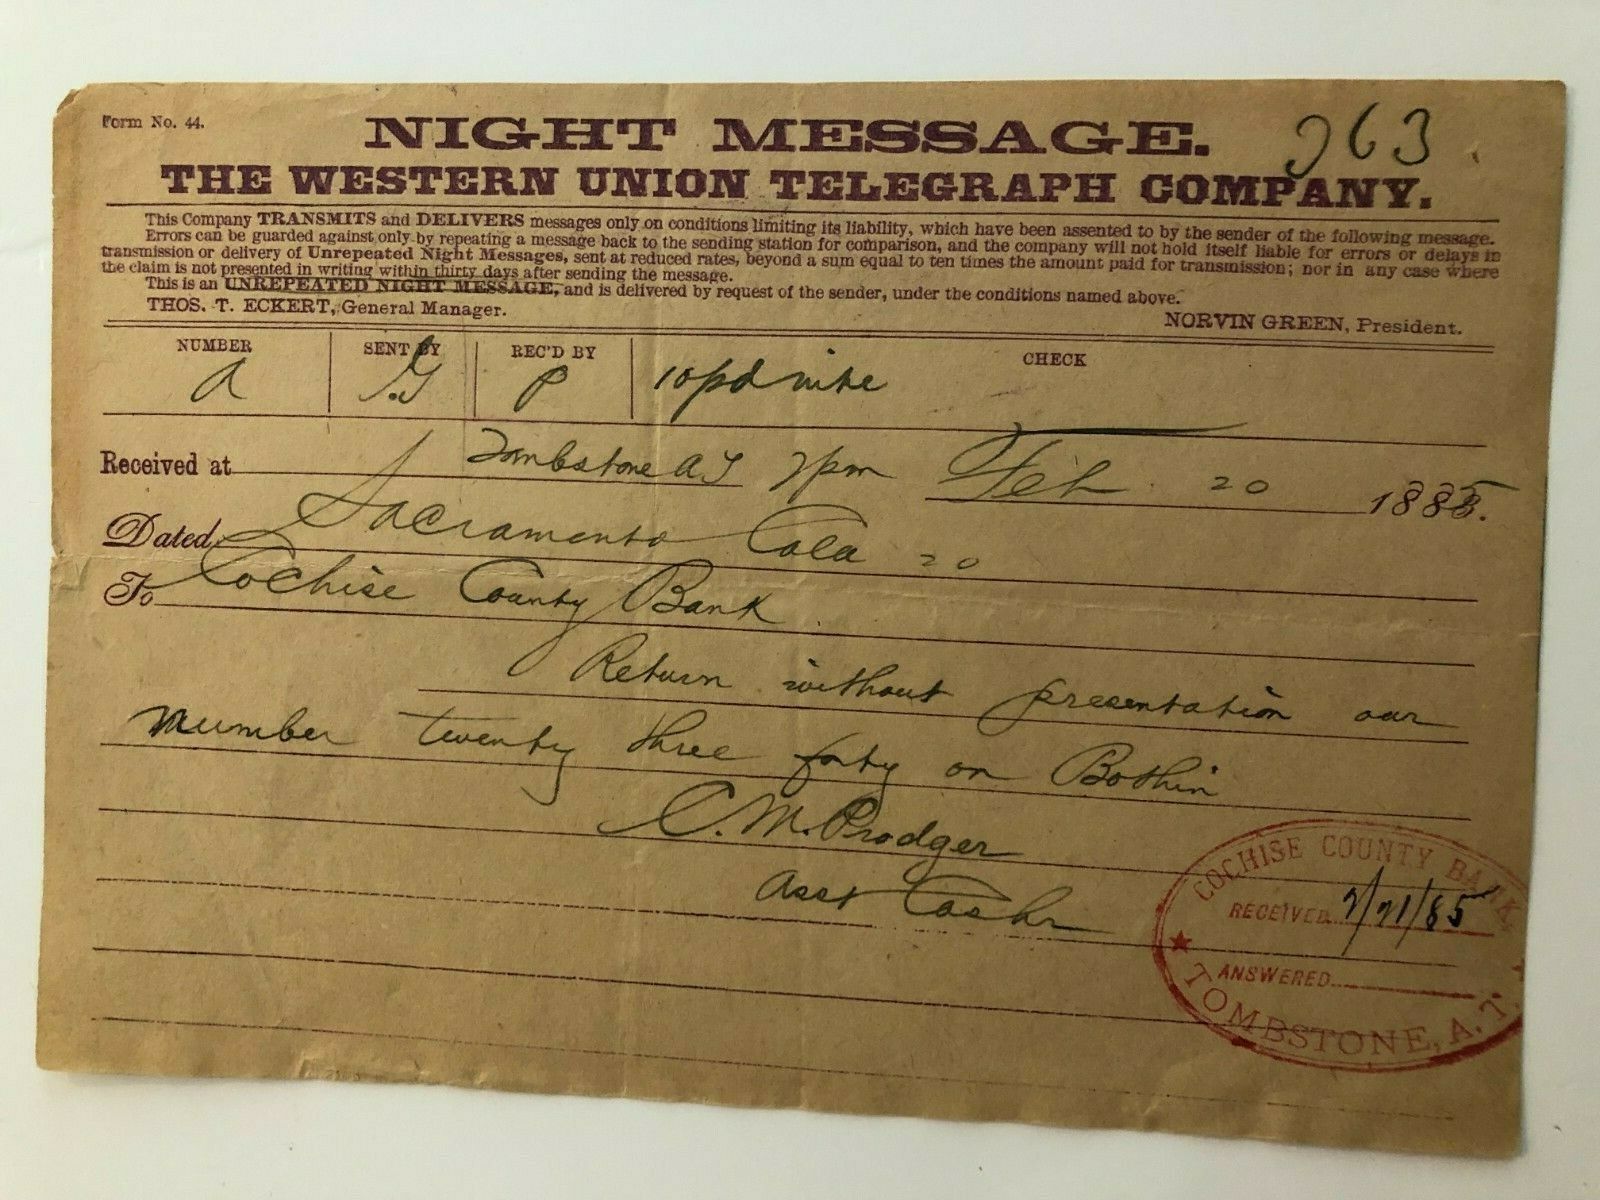 Form No. 44.
NIGHT MESSAGE.
263
THE WESTERN UNION TELEGRAPH COMPANY.
This Company TRANSMITS and DELIVERS messages only on conditions limiting its liability, which have been assented to by the sender of the following message.
Errors can be guarded against only by repeating a message back to the sending station for comparison, and the company will not hold itself liable for errors or delays in
transmission or delivery of Unrepeated Night Messages, sent at reduced rates, beyond a sum equal to ten times the amount paid for transmission; nor in any case where
the claim is not presented in writing within thirty days after sending the message.
This is an UNREPEATED NIGHT MESSAGE, and is delivered by request of the sender, under the conditions named above.
THOS. T. ECKERT, General Manager.
NORVIN GREEN, President.
NUMBER SENT BY REC'D BY CHECK
A G P 10 pd nite
Received at Tombstone A.T 7pm Feb 20 1885.
Dated Sacramento Cala 20
To Cochise County Bank
Return without presentation our
number twenty three forty on Bothin
C. M. Prodger
Asst Cashr
COCHISE COUNTY BANK
RECEIVED 2/21/85
ANSWERED
TOMBSTONE, A. T.